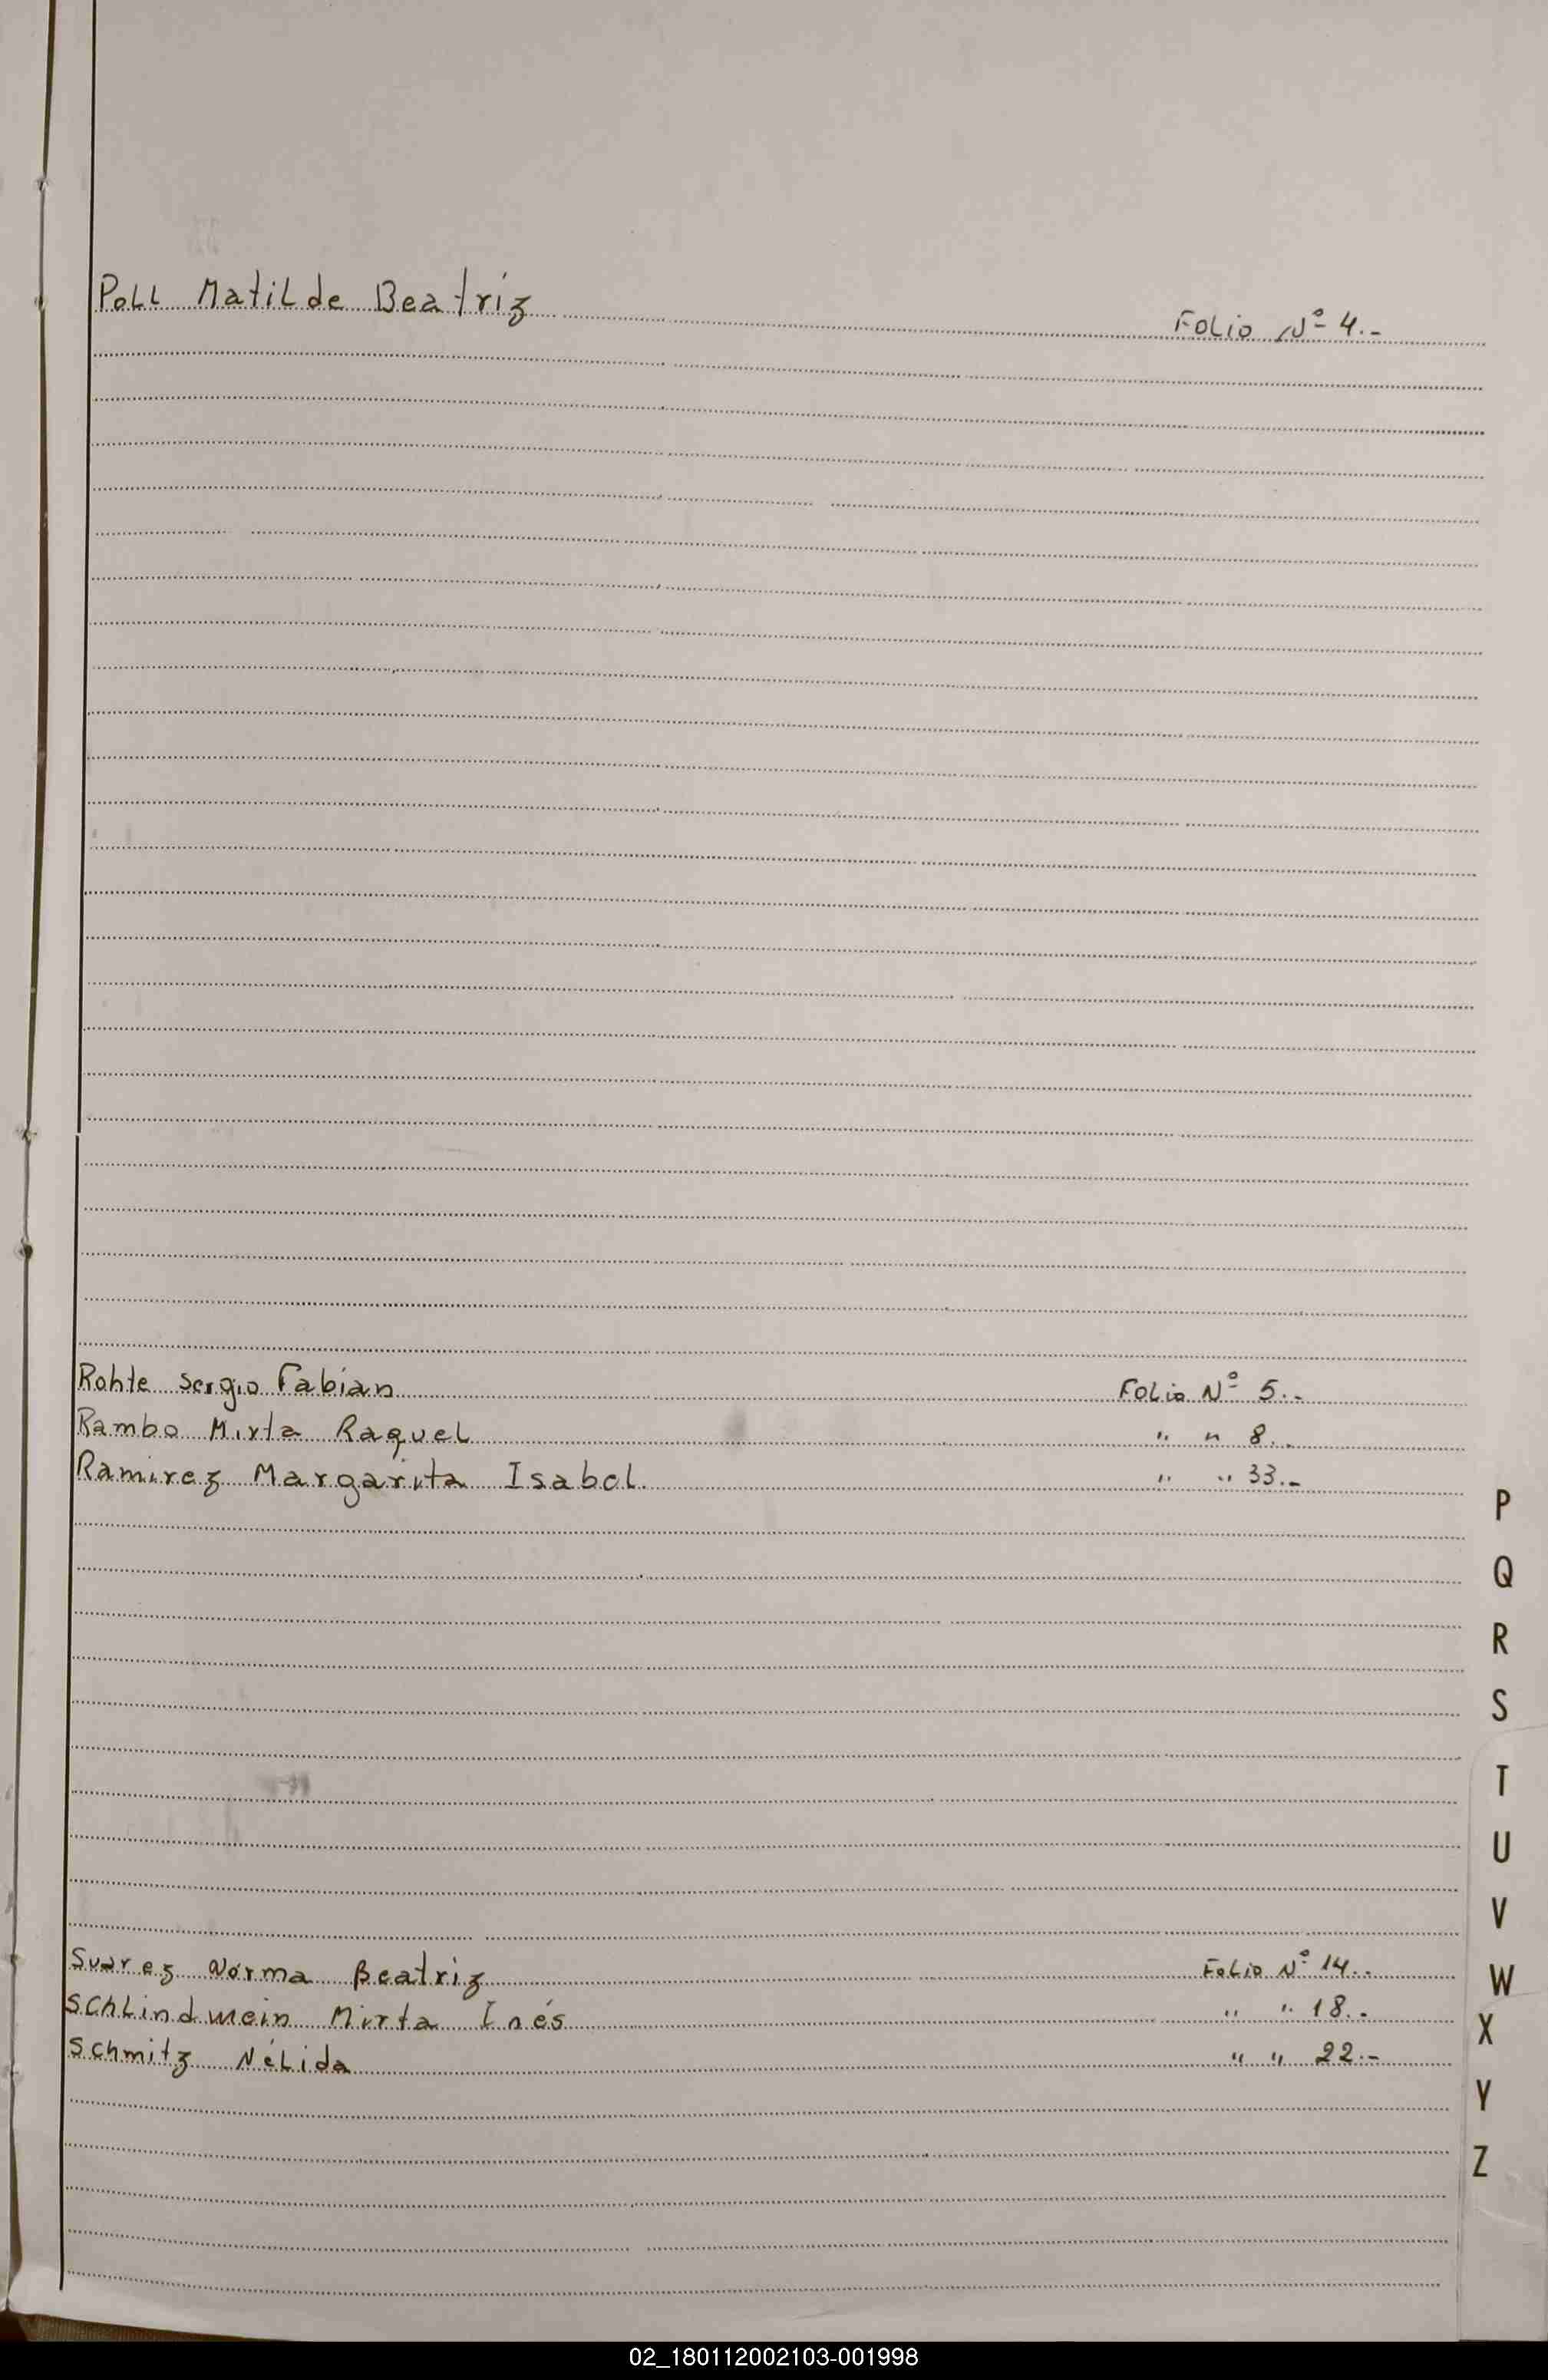 Poll Matilde Beatríz Folio Nº 4.-
Rohte Sergio Fabian Folio Nº 5.-
Rambo Mirta Raquel " " 8.-
Ramirez Margarita Isabel. " " 33.-
P
Q
R
S
T
U
V
Suarez Norma Beatriz Folio Nº 14.-
W
Schlindwein Mirta Inés " " 18.-
X
Schmitz Nélida " " 22.-
Y
Z
02_180112002103-001998